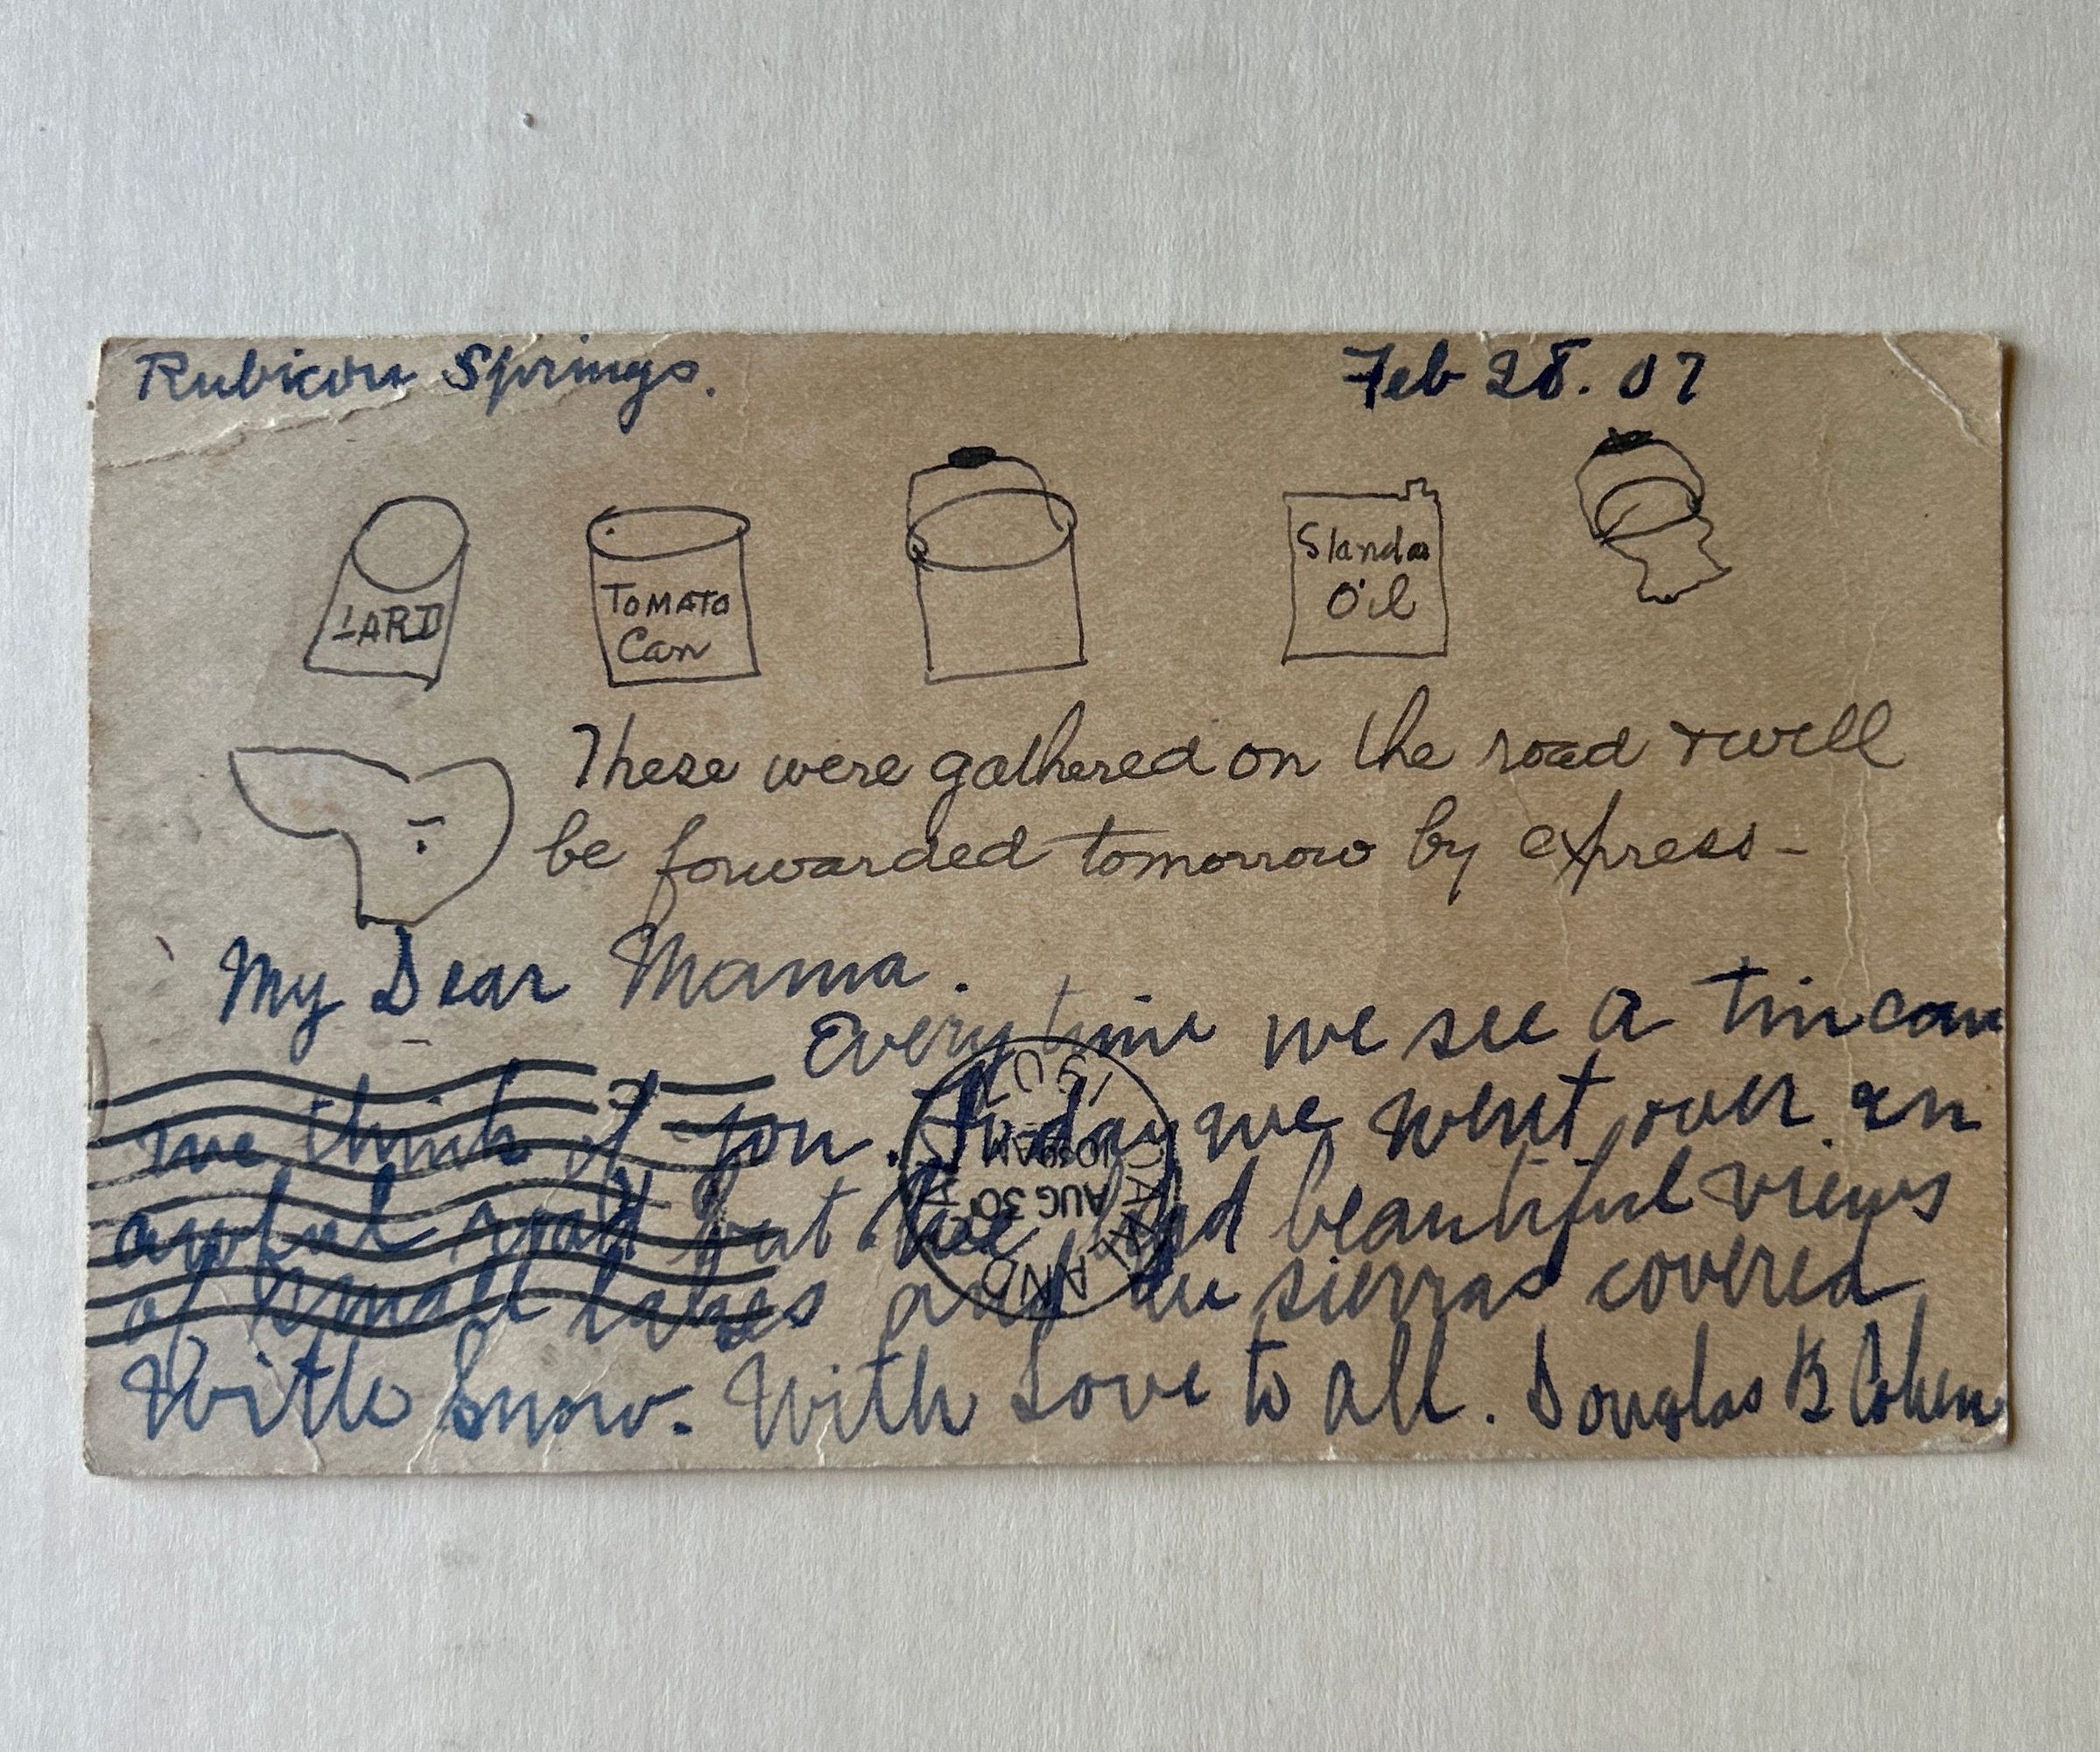 Rubicon Springs. Feb 28. 07
LARD
TOMATO
Can
Standar
Oil
These were gathered on the road & will
be forwarded tomorrow by express-
My Dear Mama.
Every time we see a tin can
we think of you. Today we went over an
awful road but we had beautiful views
of small lakes and the sierras covered
With Snow. With Love to all. Douglas B Cohen
OAKLAND
AUG 30
10 AM